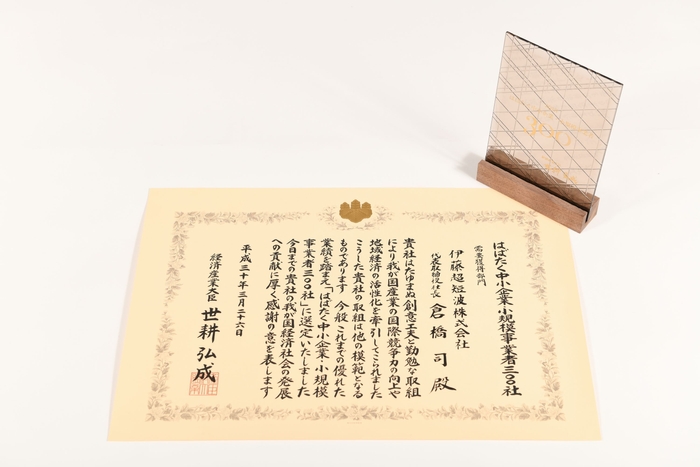 はばたく中小企業・小規模事業者三〇〇社
需要獲得部門
伊藤超短波株式会社
代表取締役社長 倉橋司殿
貴社はたゆまぬ創意工夫と勤勉な取組
により我が国産業の国際競争力の向上や
地域経済の活性化を牽引してこられました
こうした貴社の取組は他の模範となる
ものであります 今般 これまでの優れた
業績を踏まえ「はばたく中小企業・小規模
事業者三〇〇社」に選定いたしました
今日までの貴社の我が国経済社会の発展
への貢献に厚く感謝の意を表します
平成三十年三月二十六日
経済産業大臣 世耕弘成